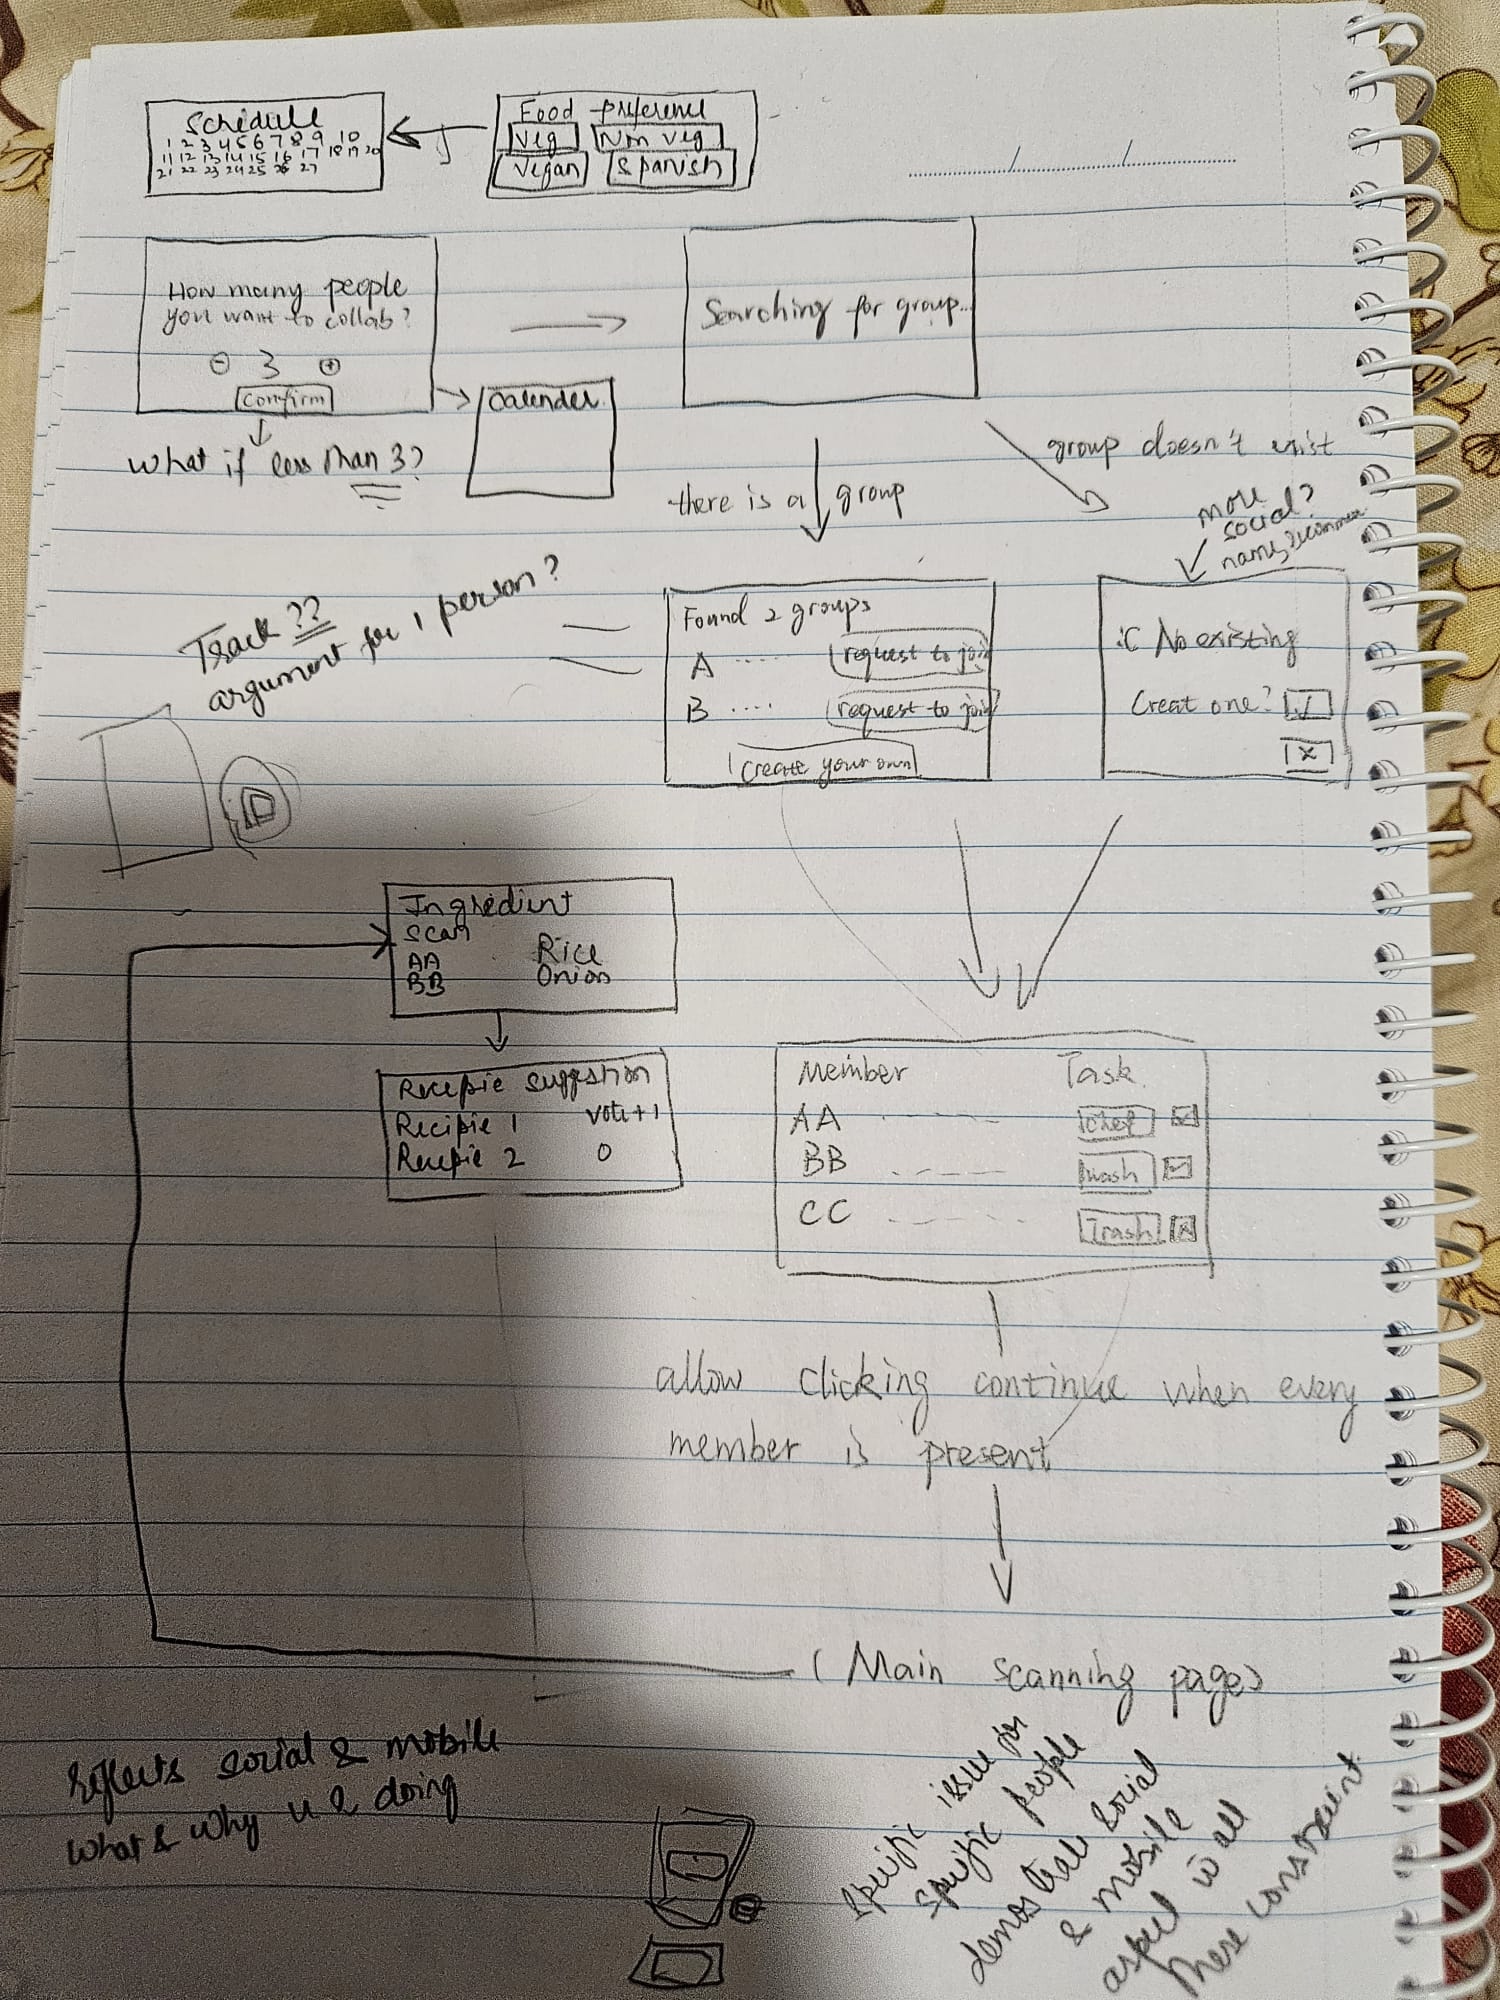 Schedule
1 2 3 4 5 6 7 8 9 10
11 12 13 14 15 16 17 18 19 20
21 22 23 24 25 26 27
Food preference
Veg Non veg
Vegan Spanish
How many people
you want to collab?
⊖ 3 ⊕
Confirm
What if less than 3?
Calender
Searching for group...
there is a group
group doesn't exist
more
social?
names,
Track ??
argument for 1 person?
Found 2 groups
A .... request to join
B .... request to join
create your own
:C No existing
Creat one? ✓
x
Ingredient
scan
AA Rice
BB Onion
Recepie suggestion
Recipie 1 vote+1
Recepie 2 0
Member Task
AA chef
BB wash
CC Trash
allow clicking continue when every
member is present
( Main scanning pages
Reflects social & mobile
What & why u r doing
specific issue for
specific people
demostrate social
& mobile
aspect in all
these constraint